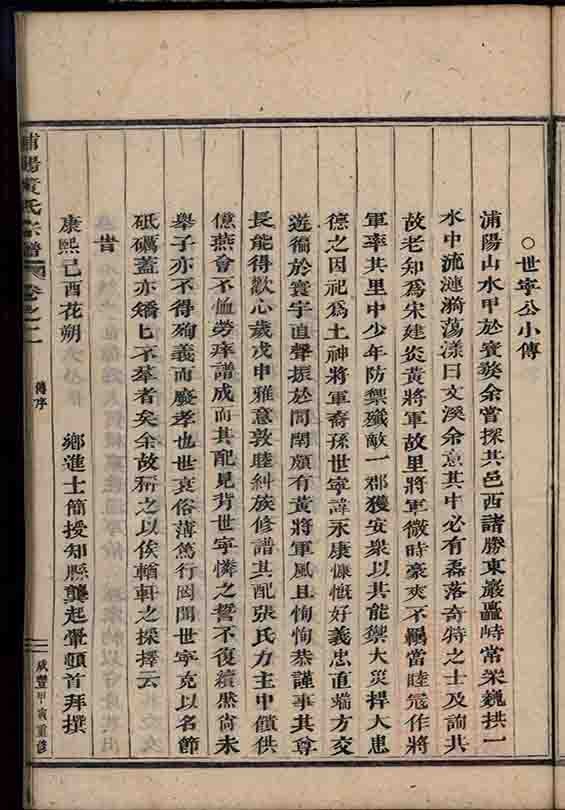 ○世寧公小傳
浦陽山水甲於寰婺余嘗探其邑西諸勝東巖矗峙常采巍拱一
水中流漣漪蕩漾曰文溪余意其中必有磊落奇特之士及詢其
故老知為宋建炎黃將軍故里將軍微時豪爽不羈當睦冦作將
軍率其里中少年防禦殱敵一郡獲安衆以其能禦大災捍大患
德之因祀為土神將軍裔孫世寧諱永康慷慨好義忠直端方交
遊徧於寰宇直聲振於閭閈頗有黃將軍風且恂恂恭謹事其尊
長能得歡心歲戊申雅意敦睦糾族修譜其配張氏力主中饋供
億燕會不恤勞瘁譜成而其配見背世寧憐之誓不復續黙尚未
舉子亦不得殉義而廢孝也世衰俗薄篤行罔聞世寧克以名節
砥礪蓋亦矯匕不羣者矣余故稱之以俟輶軒之採擇云
旹
康熙己酉花朔　鄉進士簡授知縣龔起翬頓首拜撰
浦陽黃氏宗譜
卷之二
傳序
咸豐甲寅重修